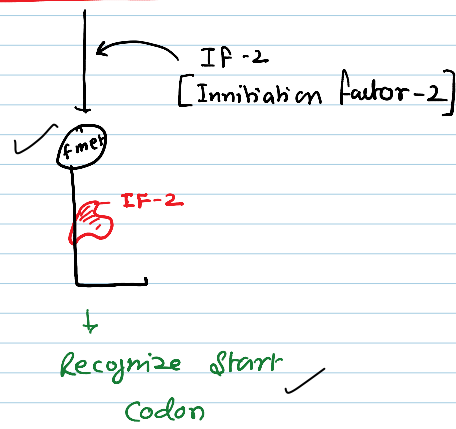 IF-2
[Innitiation factor-2]
fmet
IF-2
Recognize Start
Codon